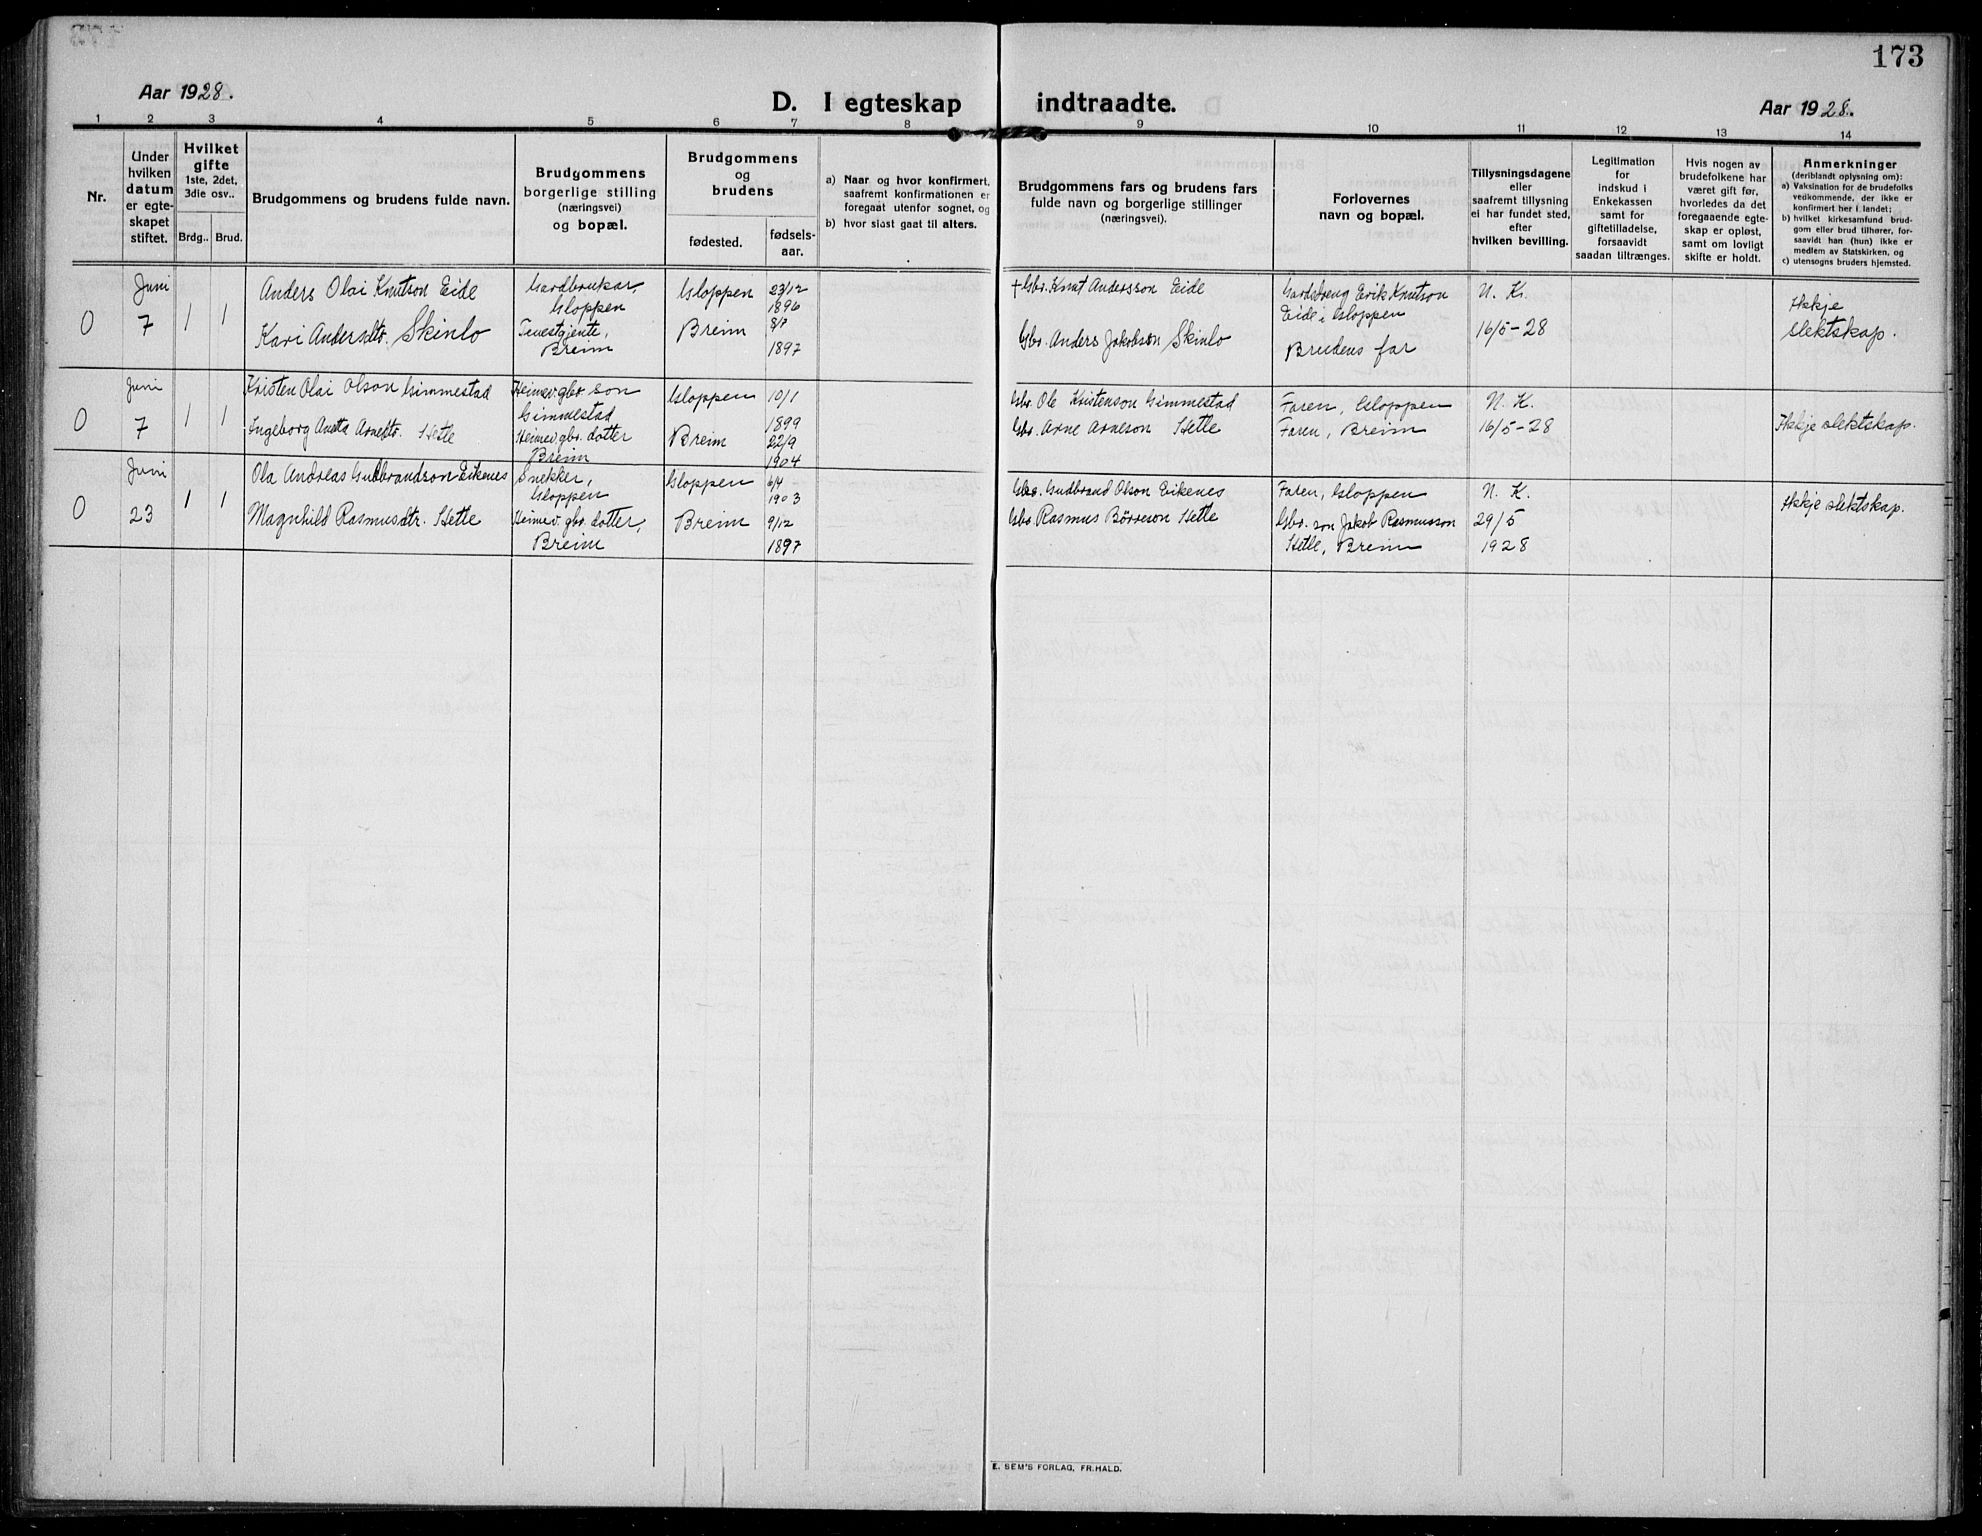 173
Aar 1928.
D. I egteskap indtraadte.
Aar 1928.
1 2 3 4 5 6 7 8 9 10 11 12 13 14
Nr.
Under
hvilken
datum
er egte-
skapet
stiftet.
Hvilket
gifte
1ste, 2det,
3die osv..
Brdg..
Brud.
Brudgommens og brudens fulde navn.
Brudgommens
borgerlige stilling
(næringsvei)
og bopæl.
Brudgommens
og
brudens
fødested.
fødsels-
aar.
a) Naar og hvor konfirmert,
saafremt konfirmationen er
foregaat utenfor sognet, og
b) hvor sidst gaat til alters.
Brudgommens fars og brudens fars
fulde navn og borgerlige stillinger
(næringsvei).
Forlovernes
navn og bopæl.
Tillysningsdagene
eller
saafremt tillysning
ei har fundet sted,
efter
hvilken bevilling.
Legitimation
for
indskud i
Enkekassen
samt for
giftetilladelse,
forsaavidt
saadan tiltrænges.
Hvis nogen av
brudefolkene har
været gift før,
hvorledes da det
foregaaende egte-
skap er opløst,
samt om lovligt
skifte er holdt.
Anmerkninger
(deriblandt oplysning om):
a) Vaksination for de brudefolks
vedkommende, der ikke er
konfirmert her i landet;
b) hvilket kirkesamfund brud-
gom eller brud tilhører, for-
saavidt han (hun) ikke er
medlem av Statskirken, og
c) utensogns bruders hjemsted.
0
Juni
7
1 1
Anders Olai Knutson Eide
Kari Andersdtr. Skinlo
Gardbrukar,
Gloppen
Tenestgjente,
Breim
Gloppen
Breim
23/12
1896
8/7
1897
+ Gbr. Knut Andersson Eide
Gbr. Anders Jakobson Skinlo
Gardsdreng Erik Knutson
Eide i Gloppen
Brudens far
N. K.
16/5-28
Ikkje
slektskap.
0
Juni
7
1 1
Kristen Olai Olson Gimmestad
Ingeborg Aneta Arnedtr. Hetle
Heimev. gbr. son
Gimmestad
Heimev. gbr. dotter
Breim
Gloppen
Breim
10/1
1899
22/9
1904
Gbr. Ole Kristenson Gimmestad
Gbr. Arne Arneson Hetle
Faren, Gloppen
Faren, Breim
N. K.
16/5-28
Ikkje slektskap.
0
Juni
23
1 1
Ola Andreas Gudbrandson Eikenes
Magnhild Rasmusdtr. Hetle
Snekker,
Gloppen
Heimev. gbr. dotter,
Breim
Gloppen
Breim
6/4
1903
9/12
1897
Gbr. Gudbrand Olson Eikenes
Gbr. Rasmus Börreson Hetle
Faren, Gloppen
Gbr. son Jakob Rasmusson
Hetle, Breim
N. K.
29/5
1928
Ikkje slektskap.
E. SEM'S FORLAG, FR.HALD.